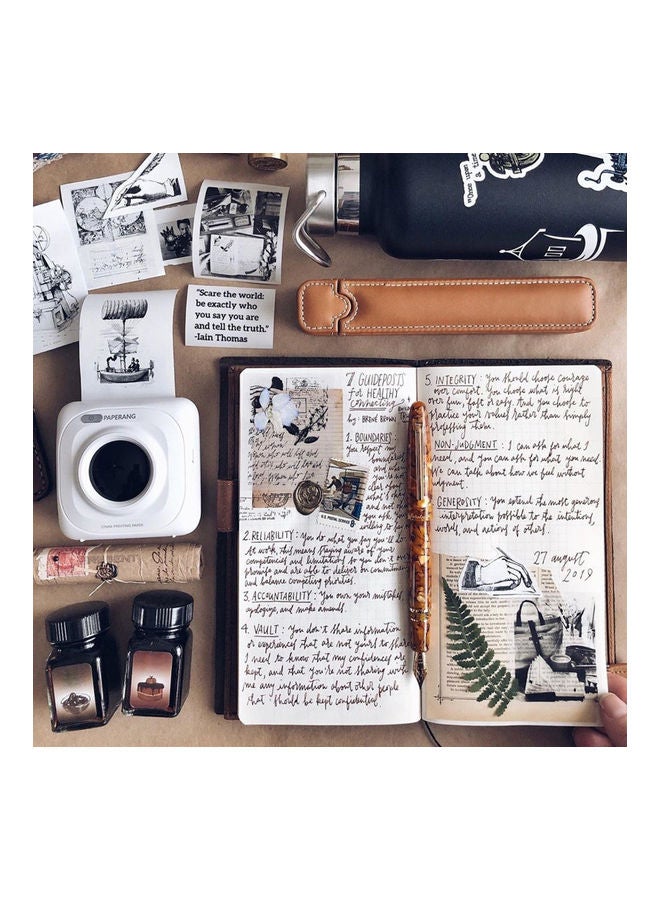 "Once upon a time"
"Scare the world:
be exactly who
you say you are
and tell the truth."
-Iain Thomas
PAPERANG
7 GUIDEPOSTS
for HEALTHY
Connecting
by: BRENÉ BROWN
1. BOUNDARIES
You respect my
boundaries
and
U.S. POSTAL SERVICE
2. RELIABILITY: You do what you say you'll do.
At work, this means staying aware of your
competencies and limitations so you don't over
promise and are able to deliver on commitments
and balance competing priorities.
3. ACCOUNTABILITY: You own your mistakes,
apologize, and make amends.
4. VAULT: You don't share information
or experiences that are not yours to share.
I need to know that my confidences are
kept, and that you're not sharing with
me any information about other people
that should be kept confidential.
5. INTEGRITY: You should choose courage
over comfort. You choose what is right
over fun, fast or easy. And you choose to
practice your values rather than simply
professing them.
NON-JUDGMENT: I can ask for what I
need, and you can ask for what you need.
We can talk about how we feel without
judgment.
GENEROSITY: You extend the most generous
interpretation possible to the intentions,
words, and actions of others.
27 august
2019